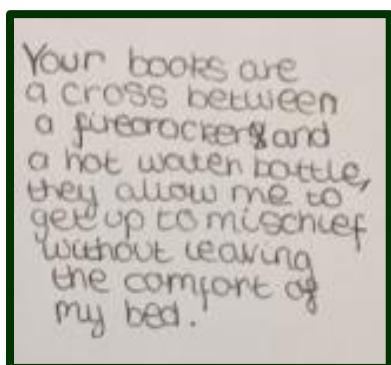 Your books are
a cross between
a firecracker and
a hot water bottle,
they allow me to
get up to mischief
without leaving
the comfort of
my bed.